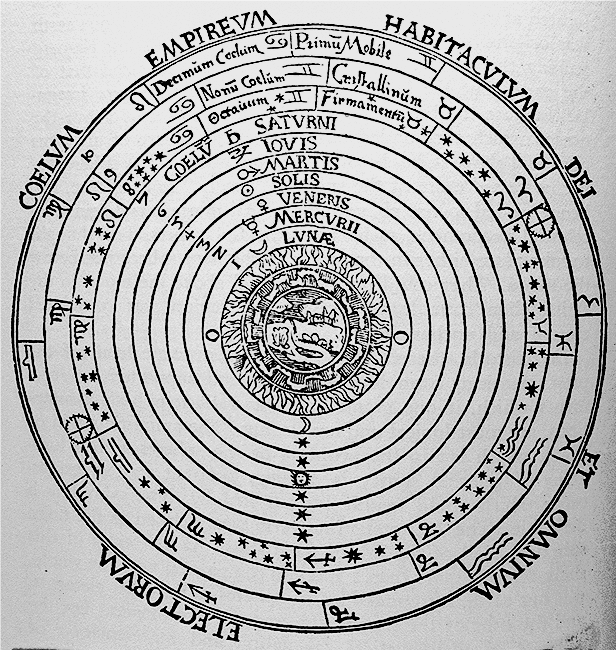 COELVM EMPIREVM HABITACVLVM DEI ET OMNIVM ELECTORVM
Decimũm Coelum ♋ Primũ Mobile ♊
Nonũ Coelum ♊ Cristallinũm ♉
Octauum ♊ Firmamentũ ♉
COELV ♄ SATVRNI
♃ IOVIS
♂ MARTIS
☉ SOLIS
♀ VENERIS
☿ MERCVRII
☾ LVNÆ
10
9
8
7
6
5
4
3
2
1